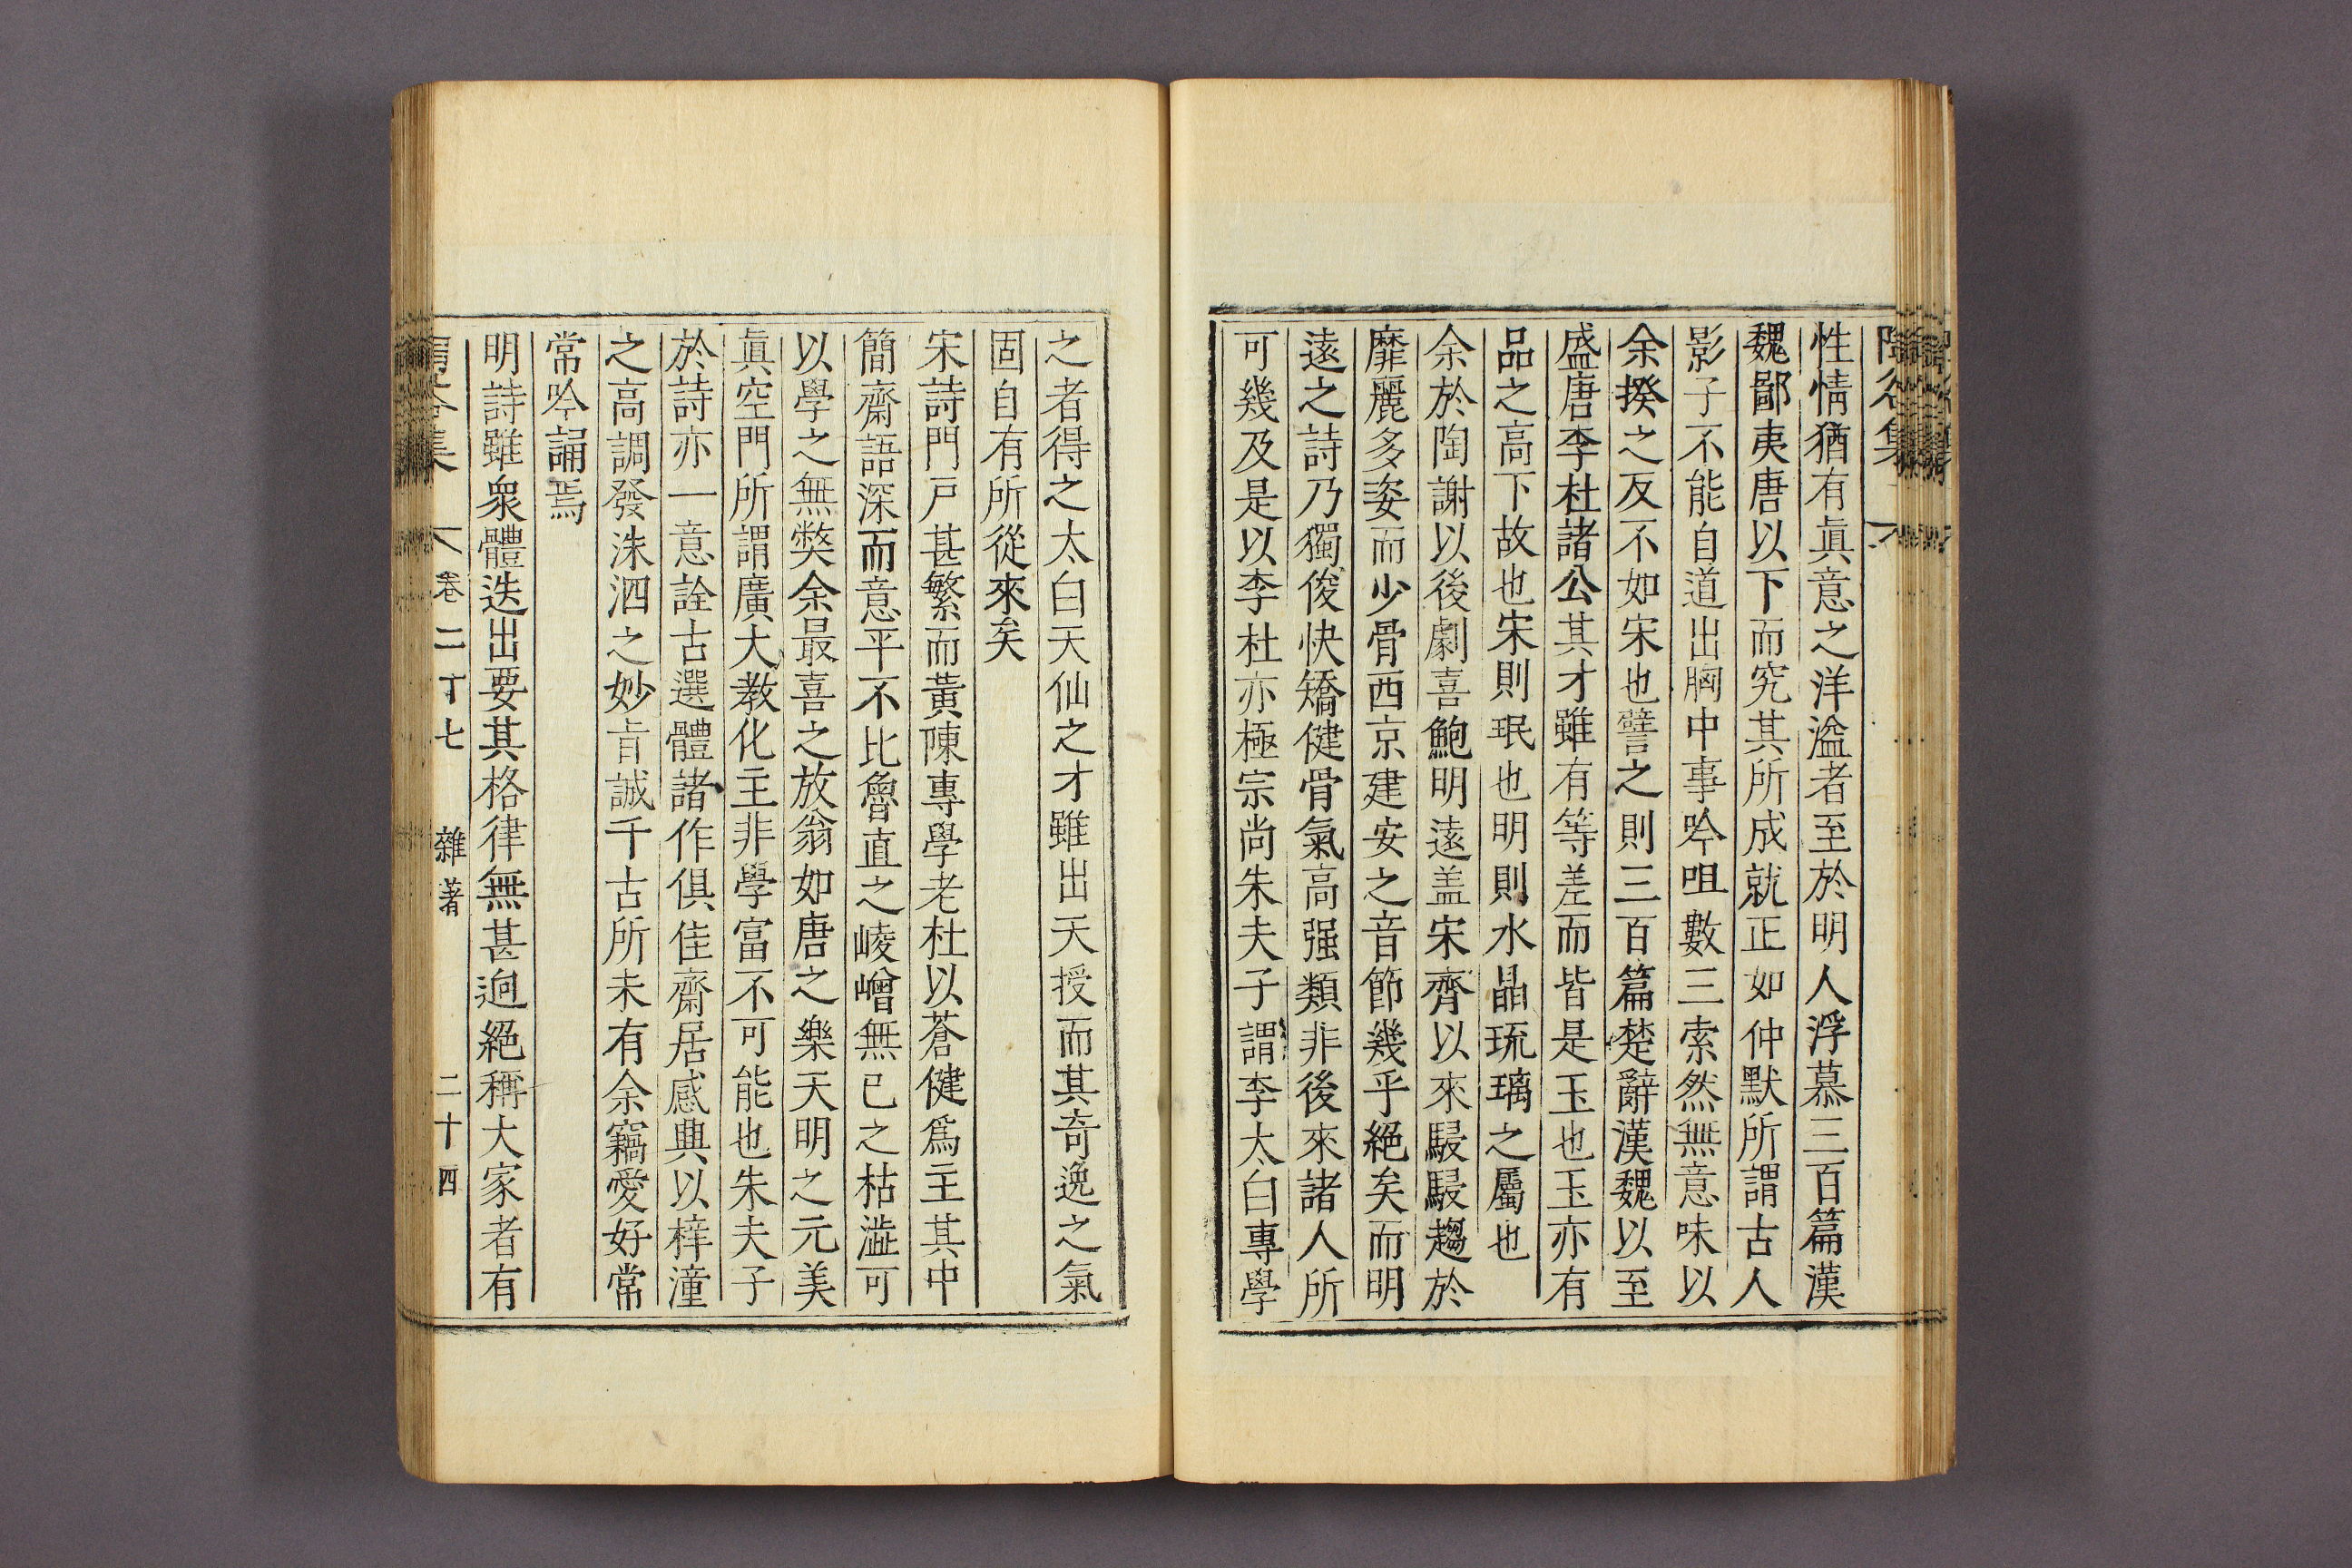 性情猶有眞意之洋溢者至於明人浮慕三百篇漢
魏鄙夷唐以下而究其所成就正如仲默所謂古人
影子不能自道出胸中事吟咀數三索然無意味以
余揆之反不如宋也譬之則三百篇楚辭漢魏以至
盛唐李杜諸公其才雖有等差而皆是玉也玉亦有
品之高下故也宋則珉也明則水晶琉璃之屬也
余於陶謝以後劇喜鮑明遠盖宋齊以來駸駸趨於
靡麗多姿而少骨西京建安之音節幾乎絕矣而明
遠之詩乃獨俊快矯健骨氣高强類非後來諸人所
可幾及是以李杜亦極宗尚朱夫子謂李太白專學
之者得之太白天仙之才雖出天授而其奇逸之氣
固自有所從來矣
宋詩門戸甚繁而黃陳專學老杜以蒼健爲主其中
簡齋語深而意平不比魯直之崚嶒無已之枯澁可
以學之無弊余最喜之放翁如唐之樂天明之元美
眞空門所謂廣大敎化主非學富不可能也朱夫子
於詩亦一意詮古選體諸作俱佳齋居感興以梓潼
之高調發洙泗之妙旨誠千古所未有余竊愛好常
常吟誦焉
明詩雖衆體迭出要其格律無甚逈絕稱大家者有
集 卷二丁七 雜著 二十四